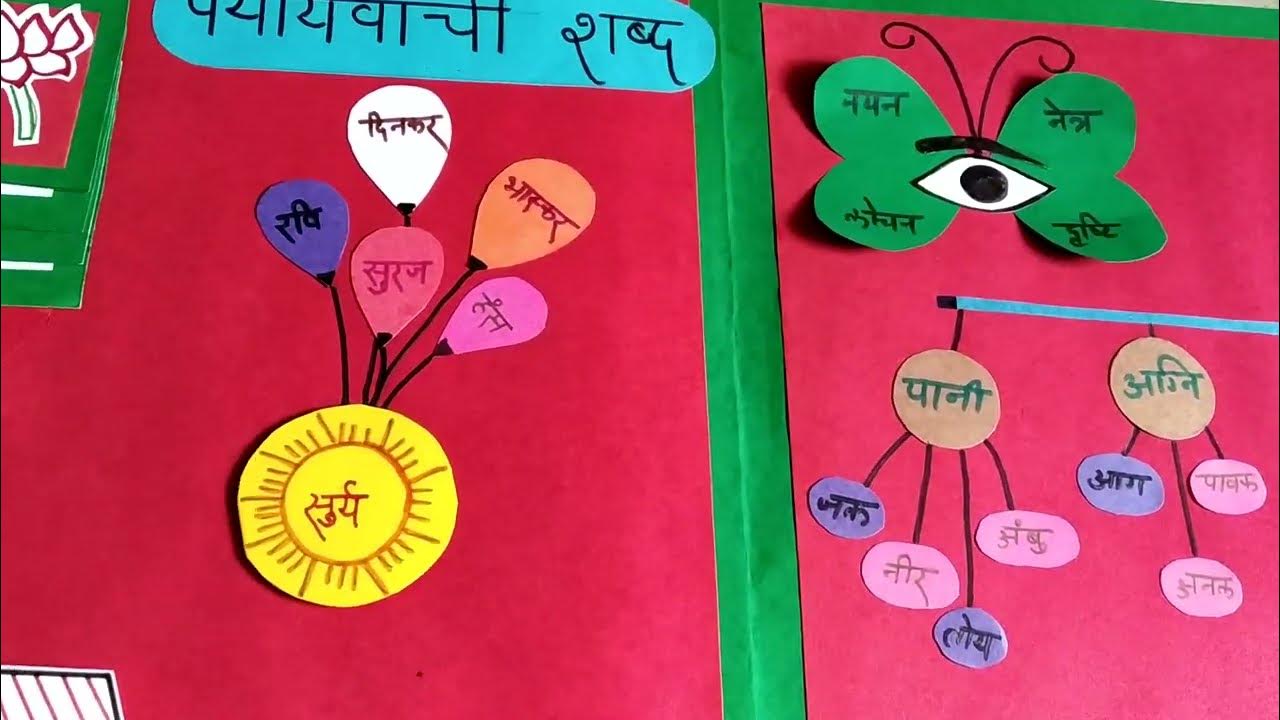 पर्यायवाची शब्द
दिनकर
रवि
भास्कर
सुरज
हंस
सुर्य
नयन
नेत्र
लोचन
दृष्टि
पानी
अग्नि
जल
नीर
तोय
अंबु
आग
पावक
अनल